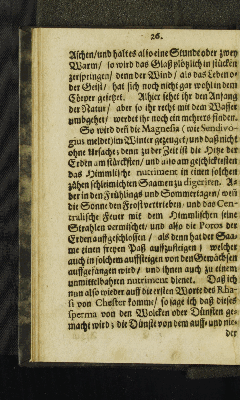 26.
Aschen/und haltes also eine Stunde oder zwey
Warm/ so wird das Glaß plötzlich in stücken
zerspringen/ denn der Wind/ als das Leben o-
der Geist/ hat sich noch nicht gar wohl in dem
Cörper gesetzet. Alhier sehet ihr den Anfang
der Natur/ aber so ihr recht mit dem Wasser
umbgehet/ werdet ihr noch ein mehrers finden.
So wird deñ die Magnesia/ wie Sendivo-
gius meldet/im Winter gezeuget/und daß nicht
ohne Ursache; denn zu der Zeit ist die Hitze der
Erden am stärcksten/ und also am geschicktesten
das Himmlische nutriment in einen solchen
zähen schleimichten Saamen zu digeriren. A-
ber in den Frühlings und Sommertagen/ wen
die Sonne den Frost vertrieben/ und das Cen-
tralische Feuer mit dem Himmlischen seine
Strahlen vermischet/ und also die Poros der
Erden auffgeschlossen/ als denn hat der Saa-
me einen freyen Paß auffzusteigen/ welcher
auch in solchem auffsteigen von den Gewächsen
auffgefangen wird/ und ihnen auch zu einem
unmittelbahren nutriment dienet. Daß ich
nun also wieder auff die ersten Worte des Rha-
sis von Chester komme/ so sage ich daß dieses
sperma von den Wolcken oder Dünsten ge-
macht wird; die Dünste von dem auff- und nie-
der